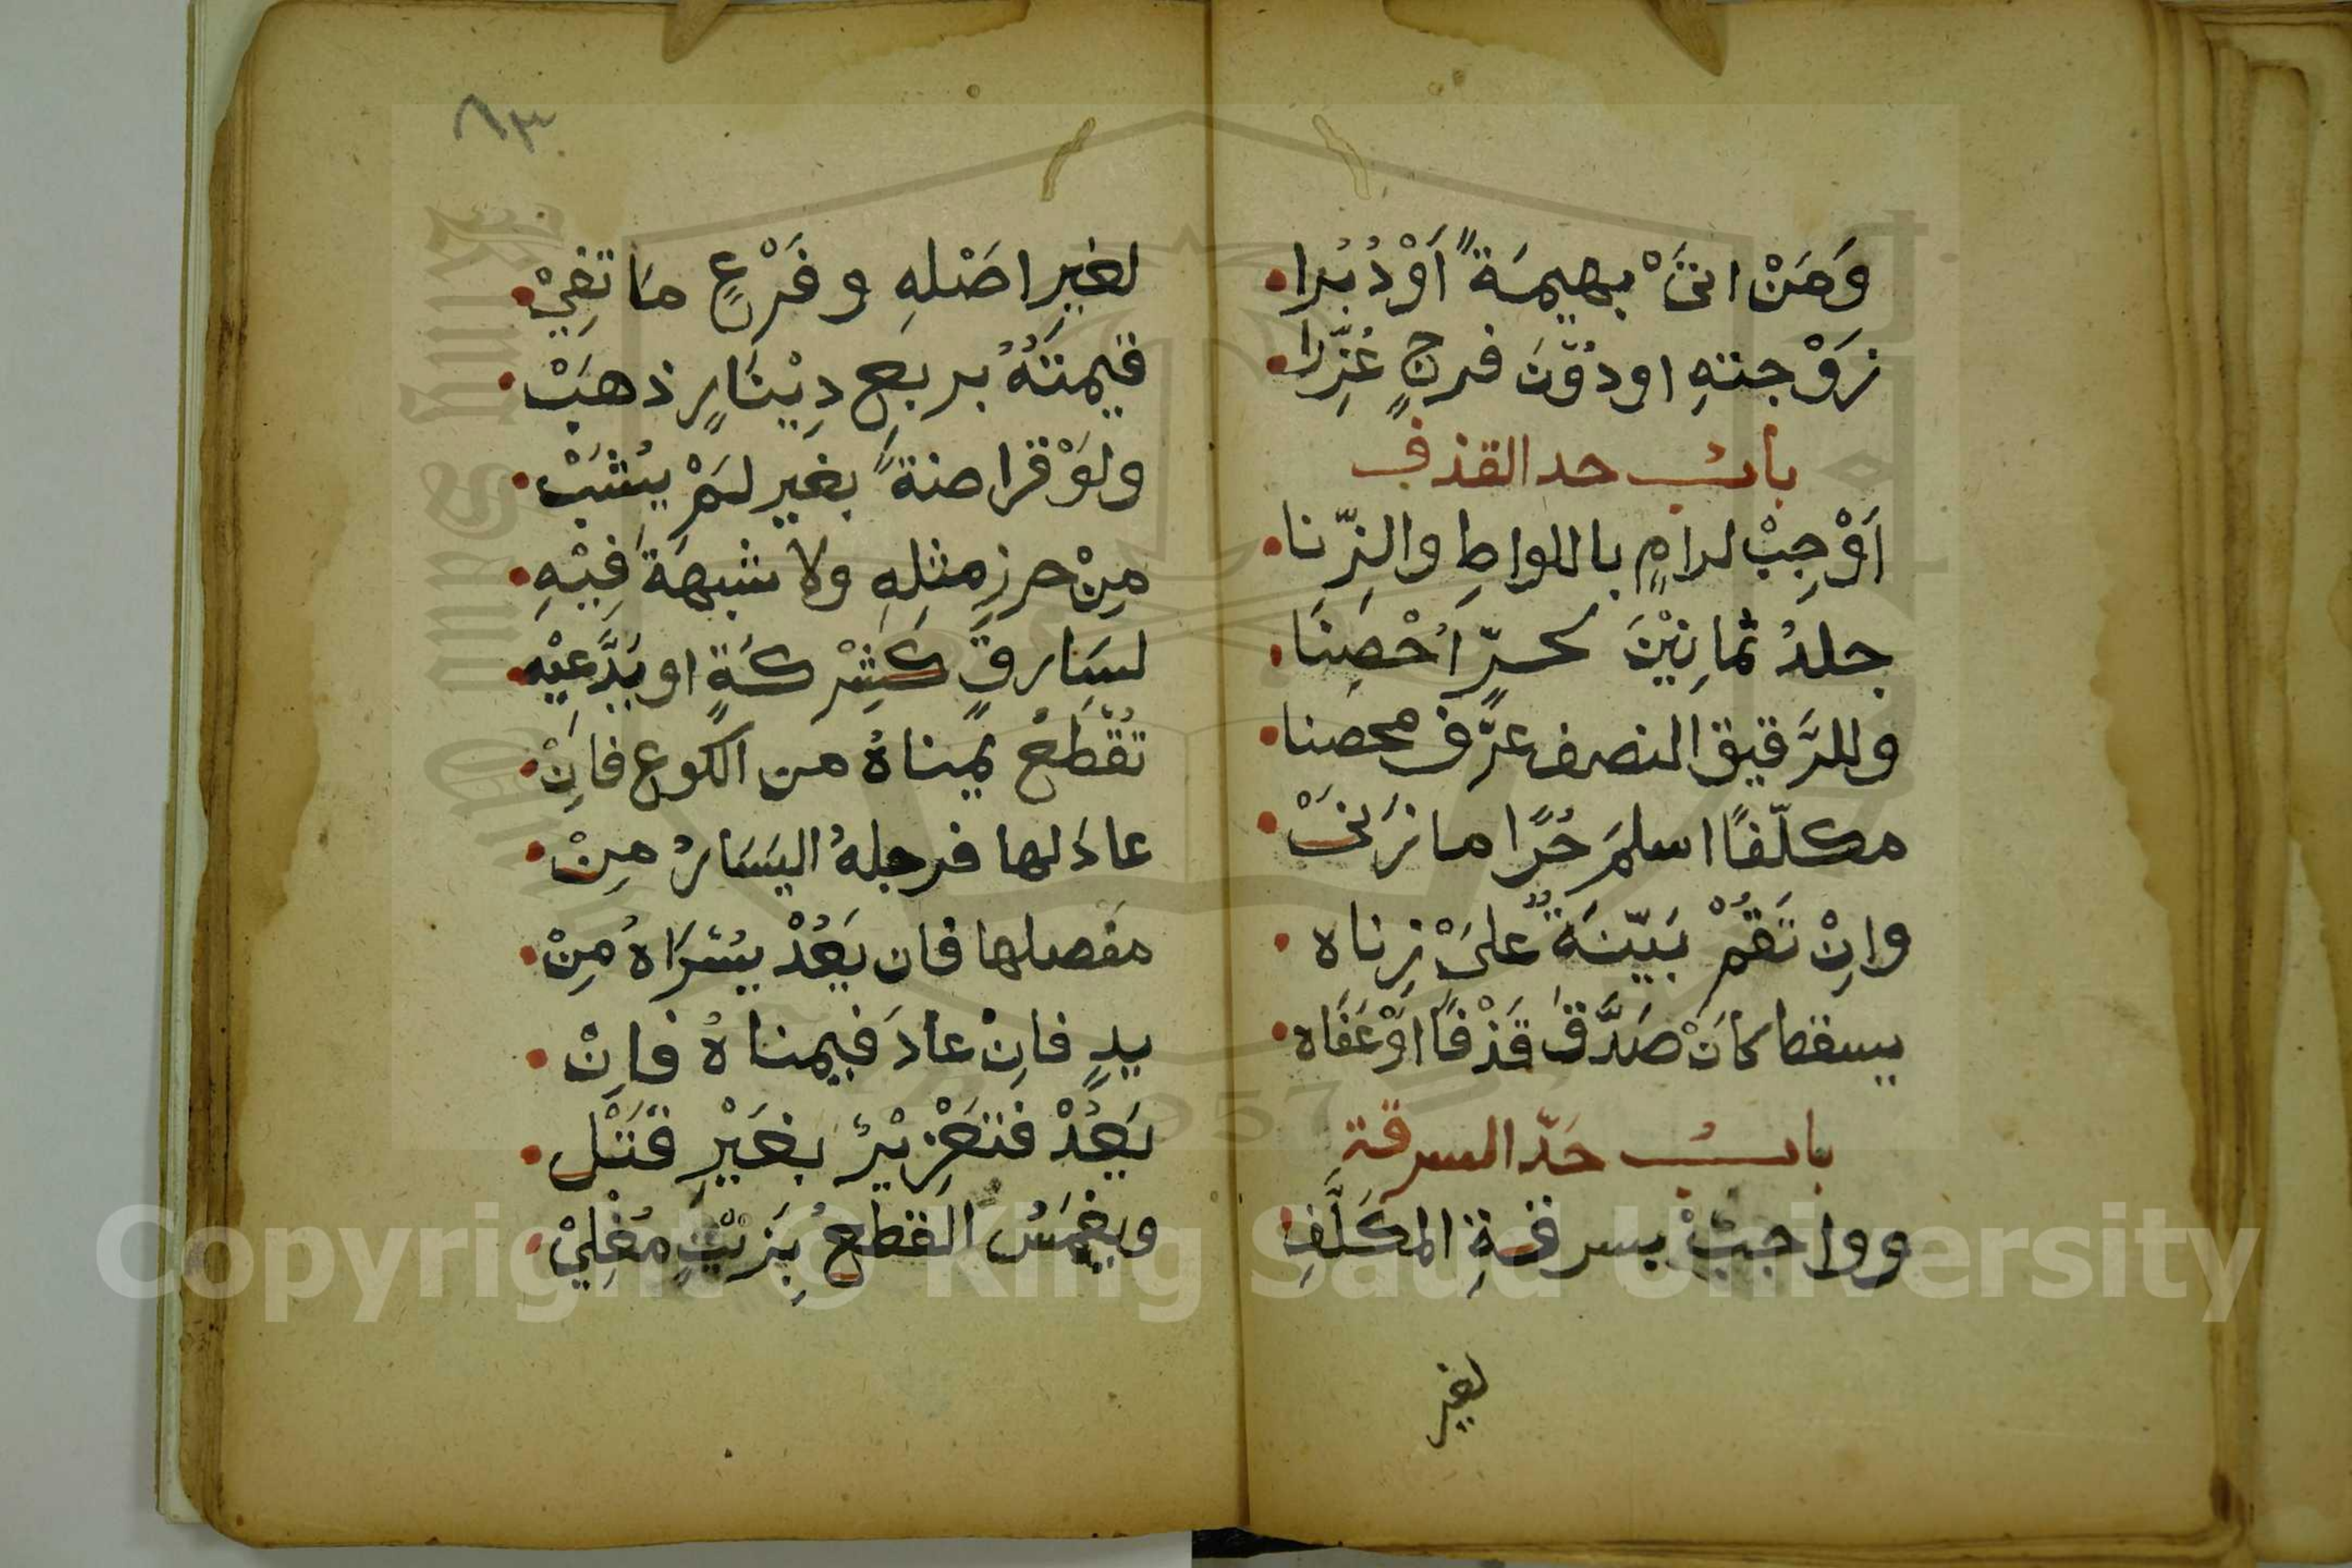 وَمَنْ اتىَ بهيمَةً اَوْ دُبُرا
زَوْجتهِ او دُوْنَ فرجٍ عُزِّرا
بابُ حد القذف
اَوْجِبْ لرامٍ باللواطِ والزِّنا
جلدُ ثمانِيْنَ لحرٍّ اُحْصِنَا
وللرَّقيق النصف عرَّف محصنا
مكلّفًا اسلمَ حُرًّا ما زَنىَ
وانِْ تَقُمْ بَيّنَةٌ علىَ زِناه
يسقط كانَْ صَدَّقَ قَذْفًا اَوْ عَفَاه
بابُ حَدّ السرقة
وواجبٌ بسرقةِ المكَلَّفِ
لغير
٦٣
لغيرِ اصَْلهِ وفَرْعٍ مَا تفِيْ
قيمتَهُ بربعِ دِيْنَارٍ ذهبْ
ولوَْ قراضةً بغيرِ لمَْ يُشَبْ
مِنْ حرزِ مثلِهِ ولا شبهةَ فِيْهِ
لسَارقٍ كَشِرْكَةٍ او يَدَّعيْهِ
تُقْطَعُ يمناهُ من الكوع فانِْ
عادَ لها فرجلهُ اليسَارُ مِنْ
مفصلها فان يَعُدْ يسُْرَاهُ مِنْ
يدٍ فانِْ عادَ فيمناهُ فانِْ
يَعُدْ فتعَْزِيْرٌ بغَيْرِ قَتْل
ويغمَسُ القطعُ بِزَيْتٍ مُغْلِيْ
Copyright © King Saud University
1957